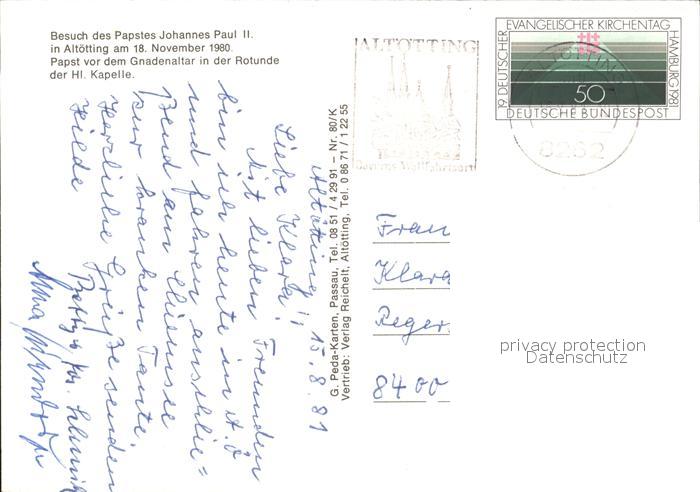 Besuch des Papstes Johannes Paul II.
in Altötting am 18. November 1980.
Papst vor dem Gnadenaltar in der Rotunde
der Hl. Kapelle.
Altötting, 15.8.81
Liebe Klara!
Mit lieben Freunden
bin ich heute in A.Ö
und fahren anschlie=
ßend am Chiemsee
zur kranken Tante.
Herzliche Grüße senden
Hilde
G. Peda-Karten, Passau, Tel. 08 51 / 4 29 91 – Nr. 80/K
Vertrieb: Verlag Reichelt, Altötting, Tel. 0 86 71 / 1 22 55
ALTÖTTING
Bayerns Wallfahrtsort
ALTÖTTING
8262
19. DEUTSCHER EVANGELISCHER KIRCHENTAG HAMBURG 1981
50
DEUTSCHE BUNDESPOST
Frau
Klara
Reger
8400
privacy protection
Datenschutz